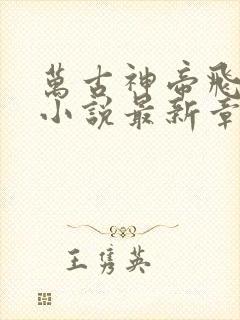 萬古神帝飛
小說最新章
王隽英